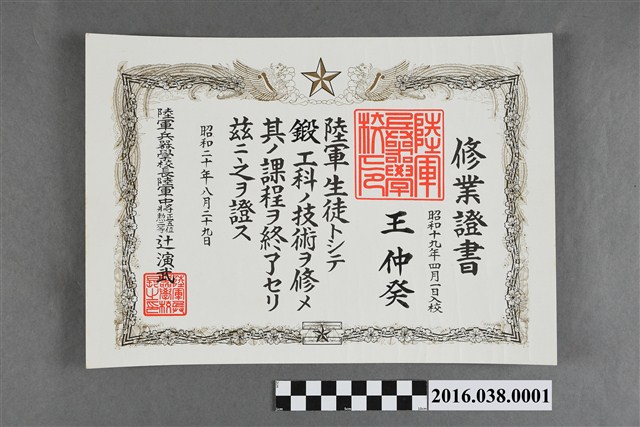 修業證書
昭和十九年四月一日入校
王仲癸
陸軍兵器學校之印
陸軍生徒トシテ
鍛工科ノ技術ヲ修メ
其ノ課程ヲ終了セリ
茲ニ之ヲ證ス
昭和二十年八月二十九日
陸軍兵器學校長陸軍中將正四位勲二等辻演武
2016.038.0001